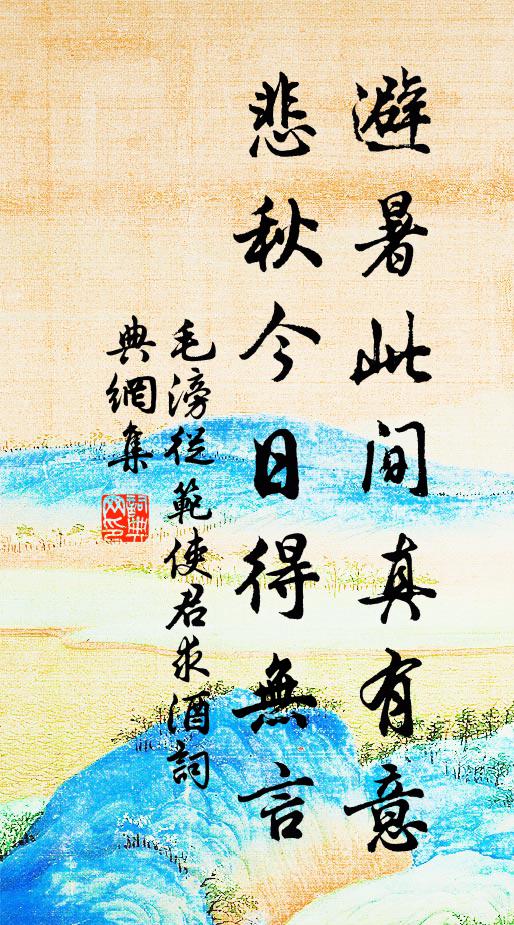 避暑此间真有意
悲秋今日得無言
毛滂從範使君求酒詞
典網集
詞典网印